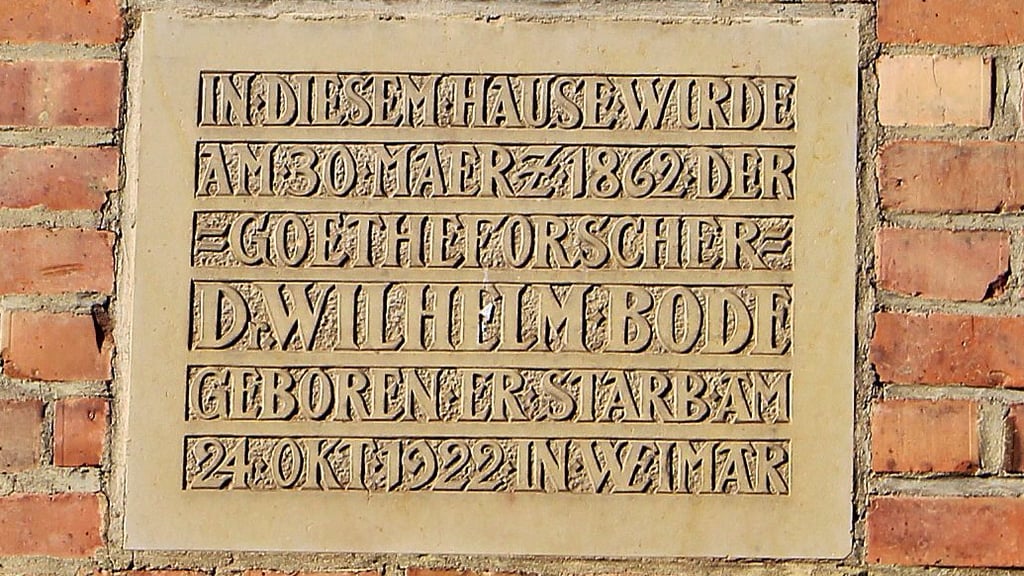 IN DIESEM HAUSE WURDE
AM 30 MAERZ 1862 DER
=GOETHEFORSCHER=
Dr WILHELM BODE
GEBOREN ER STARB AM
24 OKT 1922 IN WEIMAR